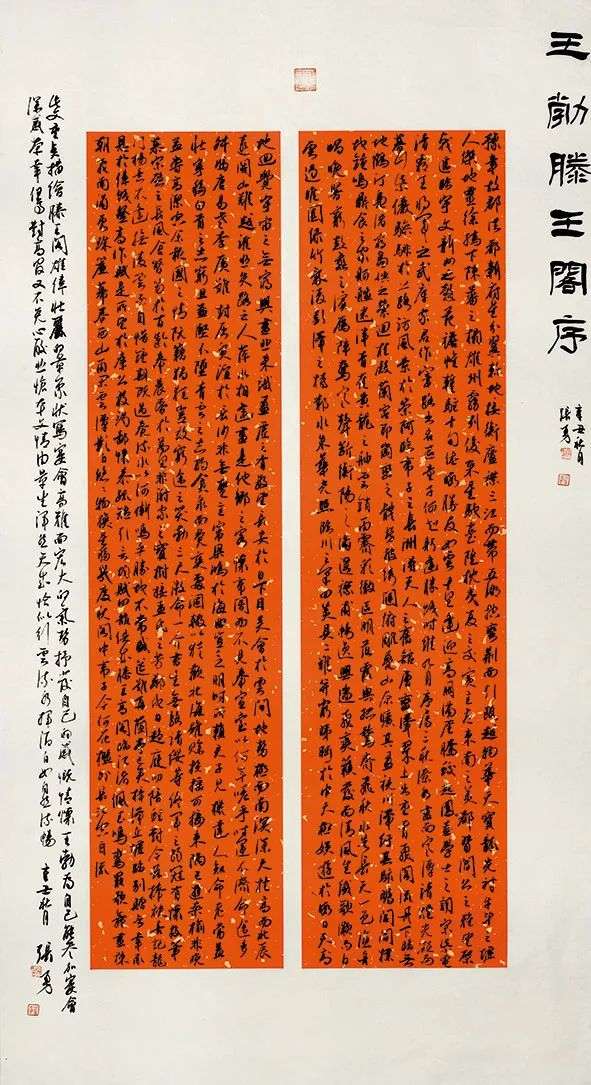 王勃滕王閣序
辛丑秋月
張勇
豫章故郡洪都新府星分翼軫地接衡廬襟三江而帶五湖控蠻荊而引甌越物華天寶龍光射牛斗之墟
人傑地靈徐孺下陳蕃之榻雄州霧列俊采星馳臺隍枕夷夏之交賓主盡東南之美都督閻公之雅望棨
戟遙臨宇文新州之懿範襜帷暫駐十旬休暇勝友如雲千里逢迎高朋滿座騰蛟起鳳孟學士之詞宗紫電
清霜王將軍之武庫家君作宰路出名區童子何知躬逢勝餞時維九月序屬三秋潦水盡而寒潭清煙光凝而
暮山紫儼驂騑於上路訪風景於崇阿臨帝子之長洲得天人之舊館層巒聳翠上出重霄飛閣流丹下臨無
地鶴汀鳧渚窮島嶼之縈迴桂殿蘭宮即岡巒之體勢披繡闥俯雕甍山原曠其盈視川澤紆其駭矚閭閻撲
地鐘鳴鼎食之家舸艦迷津青雀黃龍之舳雲銷雨霽彩徹區明落霞與孤鶩齊飛秋水共長天一色漁舟
唱晚響窮彭蠡之濱雁陣驚寒聲斷衡陽之浦遙襟甫暢逸興遄飛爽籟發而清風生纖歌凝而白
雲遏睢園綠竹氣凌彭澤之樽鄴水朱華光照臨川之筆四美具二難并窮睇眄於中天極娛遊於暇日天高
地迥覺宇宙之無窮興盡悲來識盈虛之有數望長安於日下目吳會於雲間地勢極而南溟深天柱高而北辰
遠關山難越誰悲失路之人萍水相逢盡是他鄉之客懷帝閽而不見奉宣室以何年嗟乎時運不濟命途多
舛馮唐易老李廣難封屈賈誼於長沙非無聖主竄梁鴻於海曲豈乏明時所賴君子見機達人知命老當益
壯寧移白首之心窮且益堅不墜青雲之志酌貪泉而覺爽處涸轍以猶歡北海雖賒扶搖可接東隅已逝桑榆非晚
孟嘗高潔空餘報國之情阮籍猖狂豈效窮途之哭勃三尺微命一介書生無路請纓等終軍之弱冠有懷投筆
慕宗愨之長風舍簪笏於百齡奉晨昏於萬里非謝家之寶樹接孟氏之芳鄰他日趨庭叨陪鯉對今茲捧袂喜託龍
門楊意不逢撫凌雲而自惜鍾期既遇奏流水以何慚嗚乎勝地不常盛筵難再蘭亭已矣梓澤丘墟臨別贈言幸承
恩於偉餞登高作賦是所望於群公敢竭鄙懷恭疏短引一言均賦四韻俱成滕王高閣臨江渚佩玉鳴鸞罷歌舞畫棟
朝飛南浦雲珠簾暮捲西山雨閒雲潭影日悠悠物換星移幾度秋閣中帝子今何在檻外長江空自流
此文重點描繪滕王閣雄偉壯麗的景象狀寫宴會高雅而宏大的氣勢抒發自己的感慨情懷王勃為自己能參加宴會
深感榮幸但對高官又不免心本文情由生渾然天成恰似行雲流水揮灑自如自然流暢 辛丑秋月 張勇